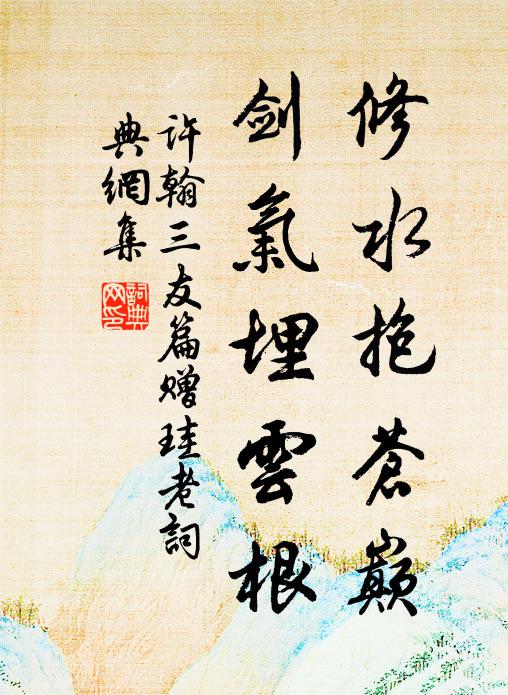 修水抱蒼巔
劍氣埋雲根
許翰三友篇贈珪老詞
典網集
詞典網印